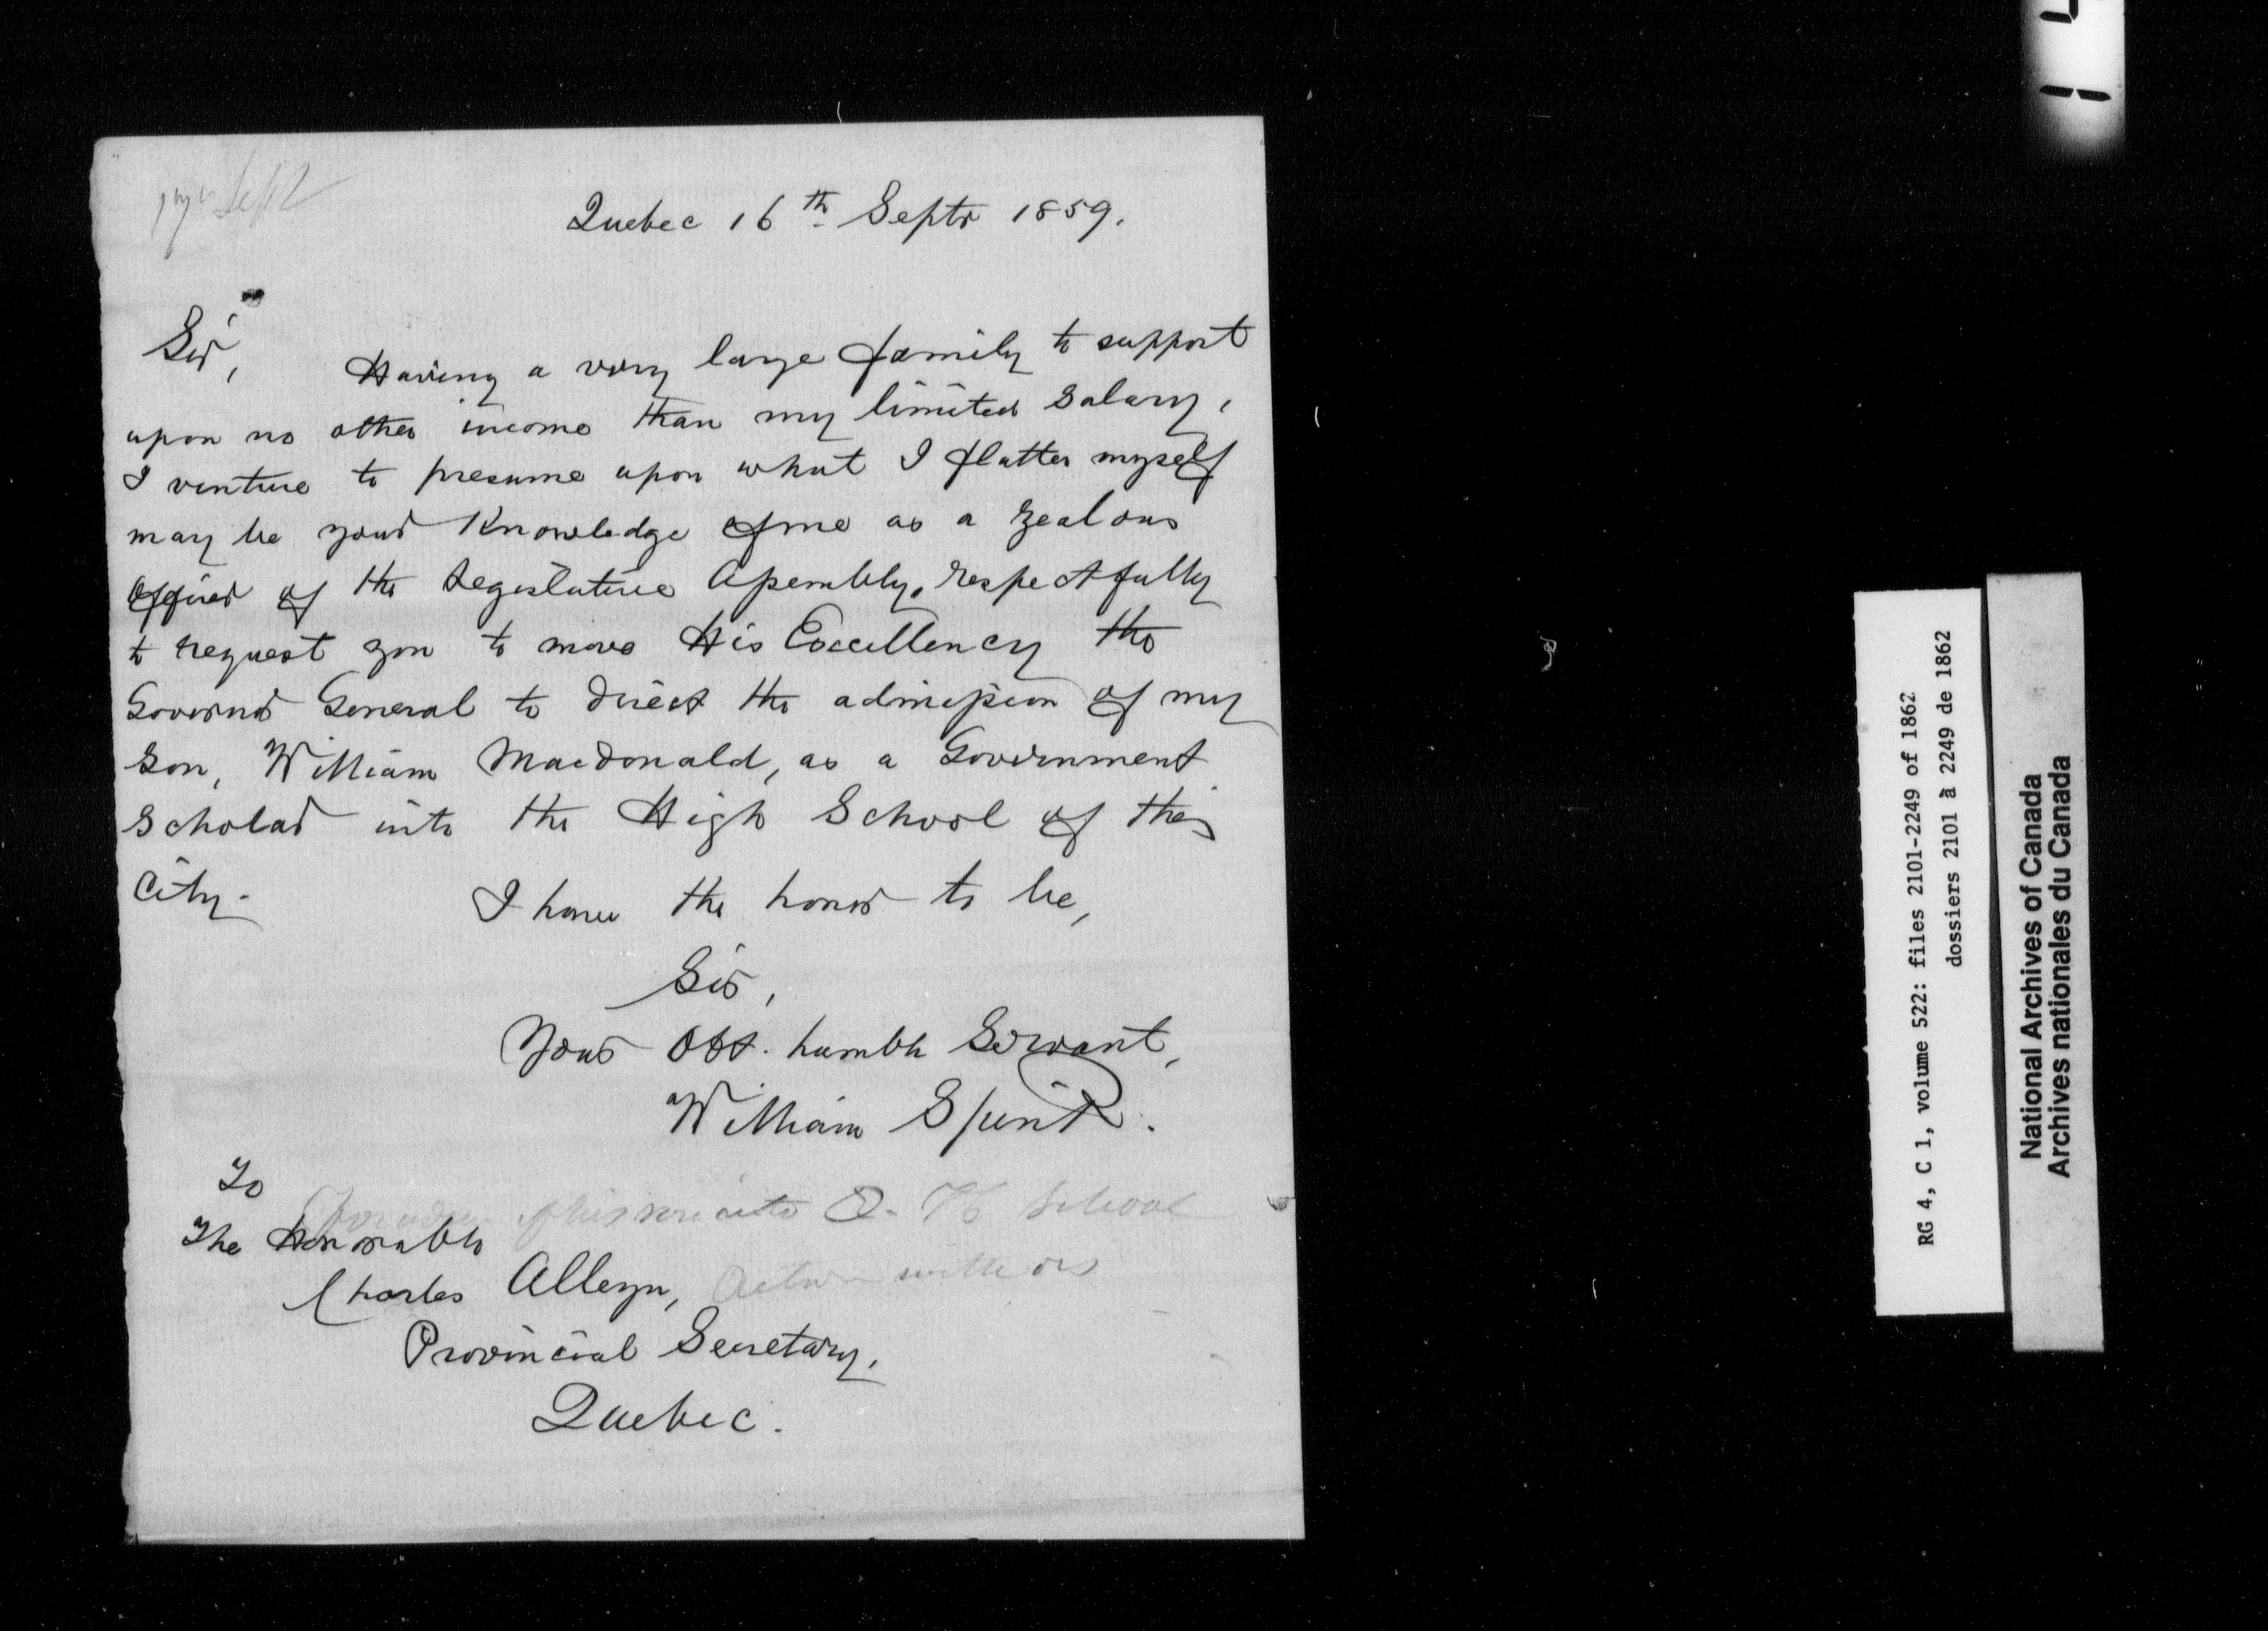 Sept
Quebec 16th Septr 1859.
Sir,
Having a very large family to support
upon no other income than my limited salary,
I venture to presume upon what I flatter myself
may be your Knowledge of me as a zealous
Officer of the Legislative Assembly, respectfully
to request you to move His Excellency the
Governor General to direct the admission of my
son, William Macdonald, as a Government
Scholar into the High School of this
City.
I have the honor to be,
Sir,
Your Obt. humble Servant,
William Spink.
To
The Honorable
Charles Alleyn,
Provincial Secretary,
Quebec.
of his son into Q. H School
RG 4, C 1, volume 522: files 2101-2249 of 1862
dossiers 2101 à 2249 de 1862
National Archives of Canada
Archives nationales du Canada